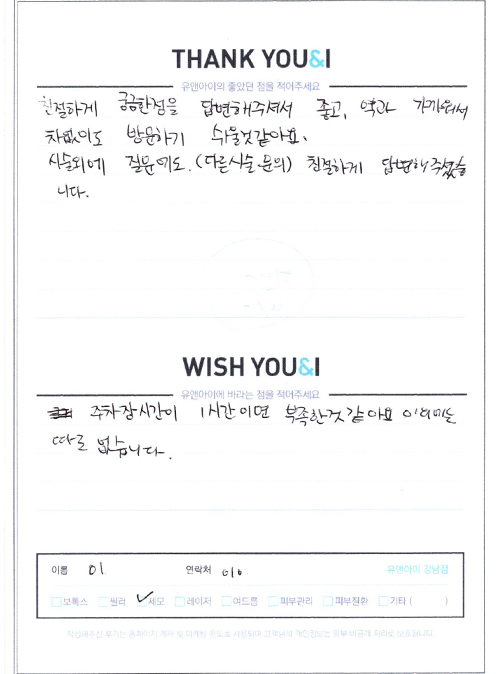 THANK YOU&I
유앤아이의 좋았던 점을 적어주세요
친절하게 궁금한점을 답변해주셔서 좋고, 역과 가까워서
차없이도 방문하기 쉬울것같아요.
시술외에 질문에도.(다른시술문의) 친절하게 답변해주셨습
니다.
WISH YOU&I
유앤아이에 바라는 점을 적어주세요
주차장시간이 1시간이면 부족한것같아요 이외에는
따로 없습니다.
이름 이 연락처 010. 유앤아이 강남점
보톡스 필러 제모 레이저 여드름 피부관리 피부질환 기타 ( )